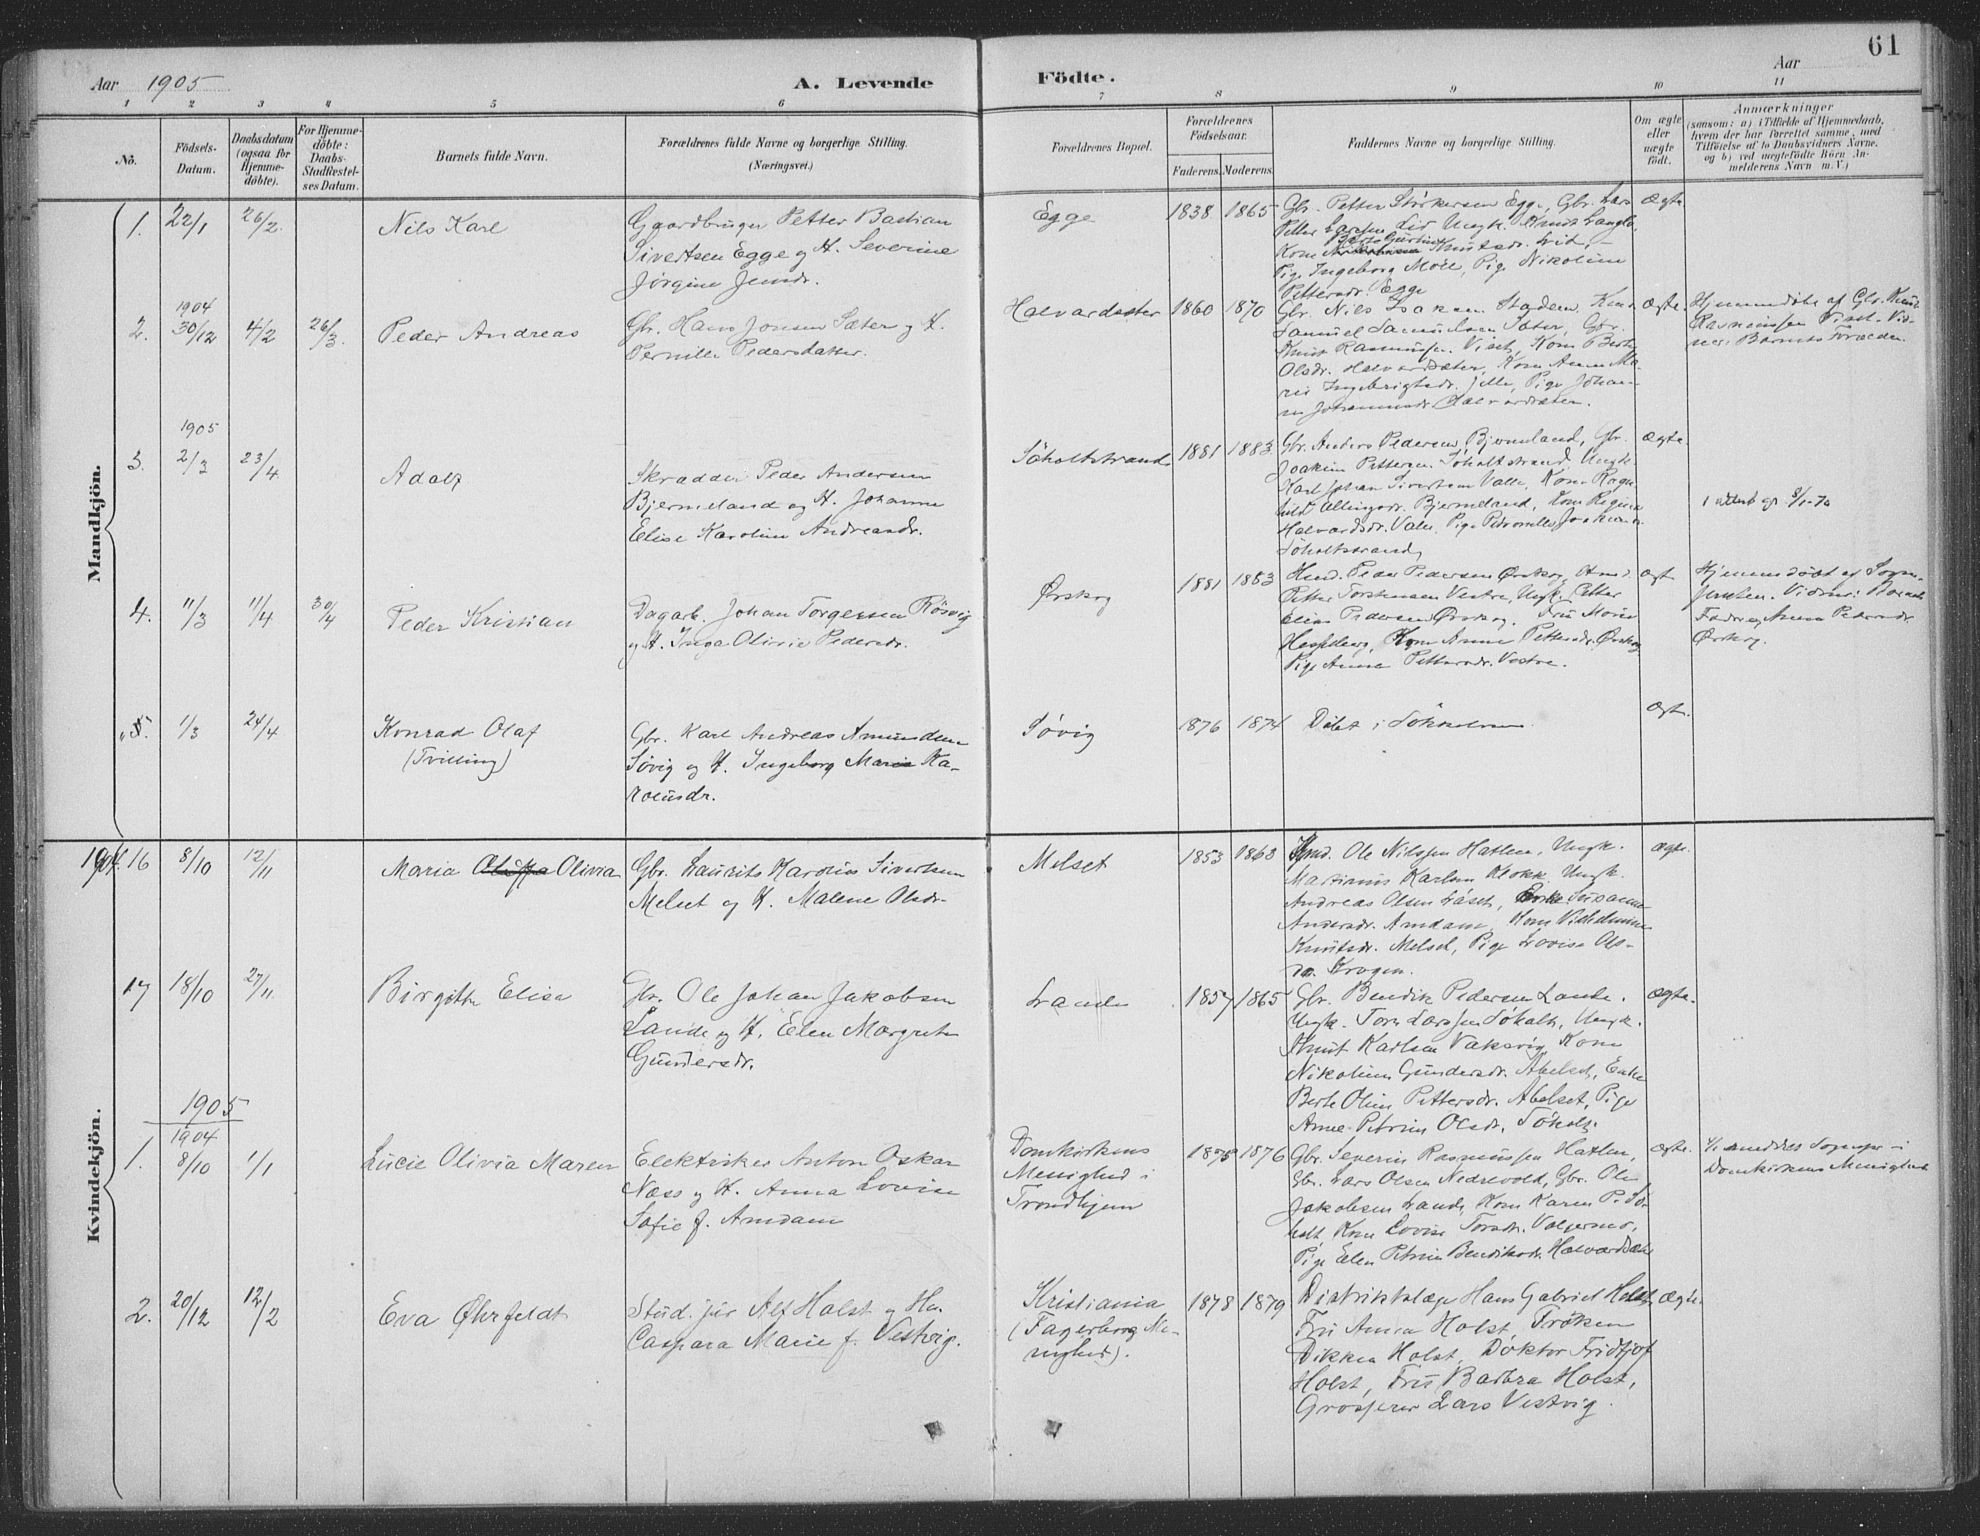 61
Aar 1905
A. Levende
Födte.
Aar
1 2 3 4 5 6 7 8 9 10 11
No.
Födsels-
Datum.
Daabsdatum
(ogsaa for
Hjemme-
döbte).
For Hjemme-
döbte:
Daabs-
Stadfæstel-
ses Datum.
Barnets fulde Navn.
Forældrenes fulde Navne og borgerlige Stilling.
(Næringsvei.)
Forældrenes Bopæl.
Forældrenes
Födselsaar.
Faderens. Moderens.
Faddernes Navne og borgerlige Stilling.
Om ægte
eller
uægte
födt.
Anmærkninger
(saasom: a) i Tilfælde af Hjemmedaab,
hvem der har forrettet samme, med
Tilföielse af to Daabsvidners Navne.
og b) ved uægtefödte Börn An-
melderens Navn m. V.)
Mandkjön.
1. 22/1 26/2
Nils Karl
Gaardbruger Petter Bastian
Sivertsen Egge og H. Severine
Jørgine Jensdr.
Egge
1838 1865
Gbr. Petter Størkersen Egge, Gbr. Lars
Petter Larsen Lid, Ungk. Knut
Berte Gurine
Kone Knutsdr. Lid,
Pige Ingeborg Moll, Pige Nikoline
Pettersdr. Egge
Ægte
1904
2. 30/12 4/2 26/3.
Peder Andreas
Gbr. Hans Jonsen Sæter og H.
Pernille Pedersdatter.
Halvardsæter
1860 1870
Gbr. Nils Isaksen Stadem,
Samuel Samuelsen Sæter, Gbr.
Knut Rasmussen Viset, Kone Berte
Olsdr. Halvardsæter, Kone Anne Ma-
rie Ingebrigtsdr. Jelle, Pige Johan-
ne Johannesdr. Halvardsæter.
Ægte.
Hjemmedøbt af Gbr. Knut
Rasmussen Viset. Vid-
ner: Barnets Forældre.
1905
3. 2/3 23/4
Adolf
Skrædder Peder Andersen
Bjermeland og H. Johanne
Elise Karoline Andreasdr.
Søholtstrand
1881 1883
Gbr. Anders Pedersen Bjermeland, Gbr.
Joakim Pettersen Søholtstrand, Ungk.
Karl Johan Sivertsen Valle, Kone Ragn-
hild Ellingsdr. Bjermeland, Kone Regine
Halvardsdr. Valle, Pige Petronelle
Søholtstrand,
Ægte
1 attest gr 8/1-70
4. 11/3 11/4 30/4
Peder Kristian
Dagarb. Johan Torgersen Røsvig
og H. Inga Olivie Pedersdr.
Ørskog
1881 1883
Hmd. Peder Pedersen Ørskog, Hmd.
Petter Torstensen Vestre, Ungk. Petter
Elias Pedersen Ørskog, Fru Marie
Hesselberg, Kone Anne Pettersdr. Ørskog
Pige Anne Pettersdr. Vestre.
Ægte
Hjemmedøbt af Sogne-
presten. Vidner: Barnets
Fader og Anne Pedersdr.
Ørskog.
5. 1/3 24/4
Konrad Olaf
(Tvilling)
Gbr. Karl Andreas Amundsen
Søvig og H. Ingeborg Marie Ka-
rolusdr.
Søvig
1876 1874
Døbt i
Ægte.
Kvindekjön.
1904. 16 8/10 12/11
Maria Olivia
Gbr. Laurits Karolus Sivertsen
Melset og H. Malene Olsdr.
Melset
1853 1863
Hmd. Ole Nilssen Hatlen, Ungk.
Martinus Karlsen Klokk, Ungk.
Andreas Olsen Løset, Enke Susanne
Andersdr. Amdam, Kone Vilhelmine
Knutsdr. Melset, Pige Lovise Ols-
dr. Krogen.
Ægte.
17 18/10 27/11
Birgitte Elise
Gbr. Ole Johan Jakobsen
Lande og H. Elen Margrete
Gundersdr.
Lande
1857 1865
Gbr. Bendik Pedersen Lande.
Ungk. Tore Larssen Søholt, Ungk.
Knut Karlsen Vaksvig, Kone
Nikoline Gundersdr. Abelset, Enke
Berte Oline Pettersdr. Abelset, Pige
Anne Petrine Olsdr. Søholt.
Ægte.
1905
1904
1. 8/10 1/1
Lucie Olivia Maren
Elektriker Anton Oskar
Næss og H. Anna Lovise
Sofie f. Amdam
Domkirkens
Menighed i
Trondhjem
1875 1876
Gbr. Severin Rasmussen Hatlen,
Gbr. Lars Olsen Nedrevold, Gbr. Ole
Jakobsen Lande, Kone Karen P. Sø-
holt, Kone Lovise Torsdr. Valgermo,
Pige Elen Petrine Bendiksdr. Halvardsæter
Ægte.
Domkirkens Menighed
2. 20/12 12/2
Eva Øhrfeldt
Stud. jur Alf Holst og Hu.
Caspara Marie f. Vestvig.
Kristiania
(Fagerborg Me-
nighed).
1878 1879
Distriktslæge Hans Gabriel Holst,
Fru Anna Holst, Frøken
Dikken Holst, Doktor Fridtjof
Holst, Fru Barbra Holst,
Grosserer Lars Vestvig.
Ægte.